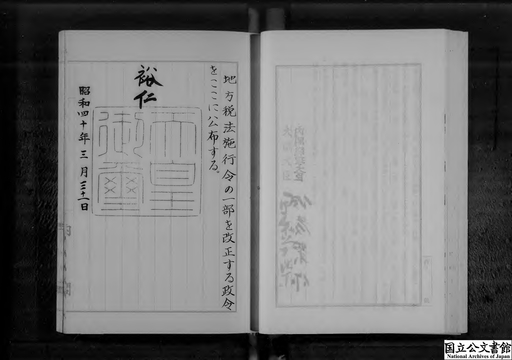 地方税法施行令の一部を改正する政令
をここに公布する。
裕仁
天皇
御璽
昭和四十年三月三十一日
国立公文書館
National Archives of Japan